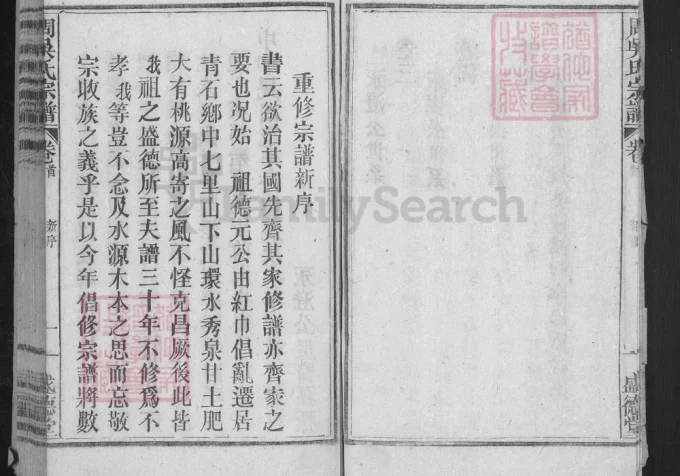 重修宗譜新序
書云欲治其國先齊其家修譜亦齊家之
要也況始 祖德元公由紅巾倡亂遷居
青石鄉中七里山下山環水秀泉甘土肥
大有桃源高寄之風不怪克昌厥後此皆
我祖之盛德所至夫譜三十年不修爲不
孝我等豈不念及水源木本之思而忘敬
宗收族之義乎是以今年倡修宗譜將數
周吳氏宗譜 卷首 新序 一 盛德堂
周吳氏宗譜 卷 一 盛德堂
FamilySearch